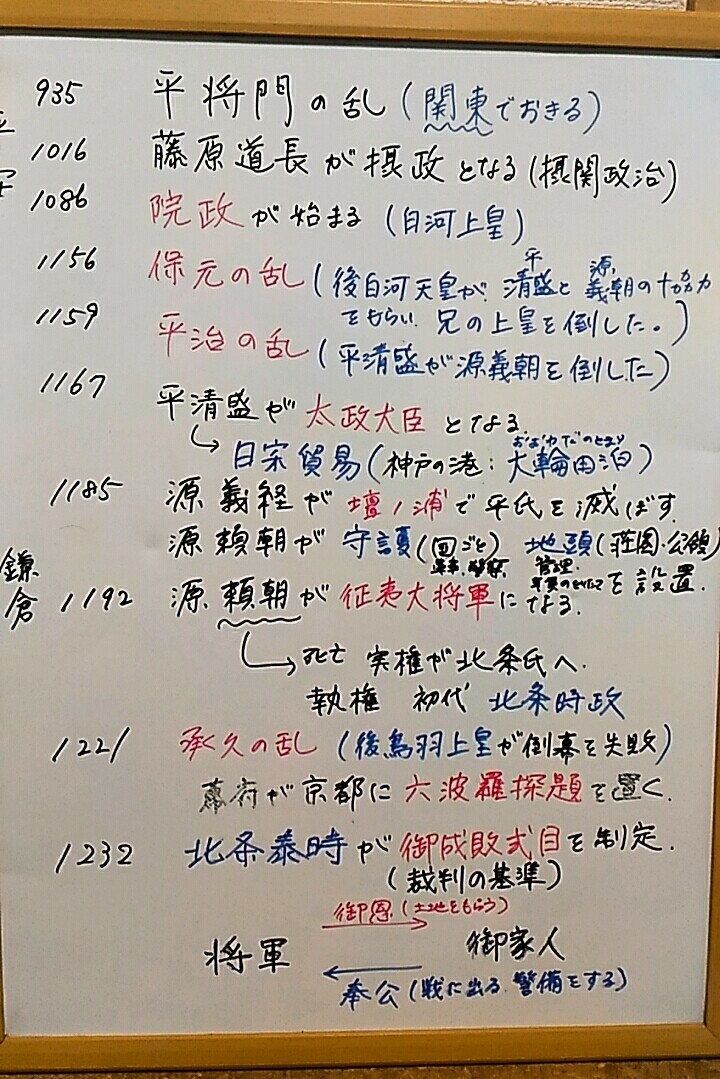 935 平将門の乱(関東でおきる)
1016 藤原道長が摂政となる(摂関政治)
1086 院政が始まる(白河上皇)
1156 保元の乱(後白河天皇が平清盛と源義朝の力
をもらい兄の上皇を倒した。)
1159 平治の乱(平清盛が源義朝を倒した)
1167 平清盛が太政大臣となる
→日宋貿易(神戸の港:大輪田泊)
おおわだのとまり
1185 源義経が壇ノ浦で平氏を滅ぼす
源頼朝が守護(国ごと) 地頭(荘園・公領)
軍事、警察 管理 年貢のとりたて を設置.
鎌倉
1192 源頼朝が征夷大将軍になる.
→死亡 実権が北条氏へ.
執権 初代 北条時政
1221 承久の乱(後鳥羽上皇が倒幕を失敗)
幕府が京都に六波羅探題を置く.
1232 北条泰時が御成敗式目を制定.
(裁判の基準)
御恩(土地をもらう)
将軍 御家人
奉公(戦に出る、警備をする)